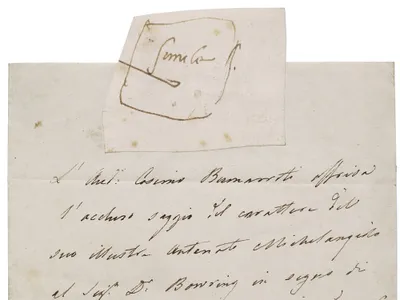 L'Aut: Cosimo Buonarroti offriva
l'accluso saggio del carattere del
suo illustre antenato Michelangelo
al Sig. Dr. Bowring in segno di